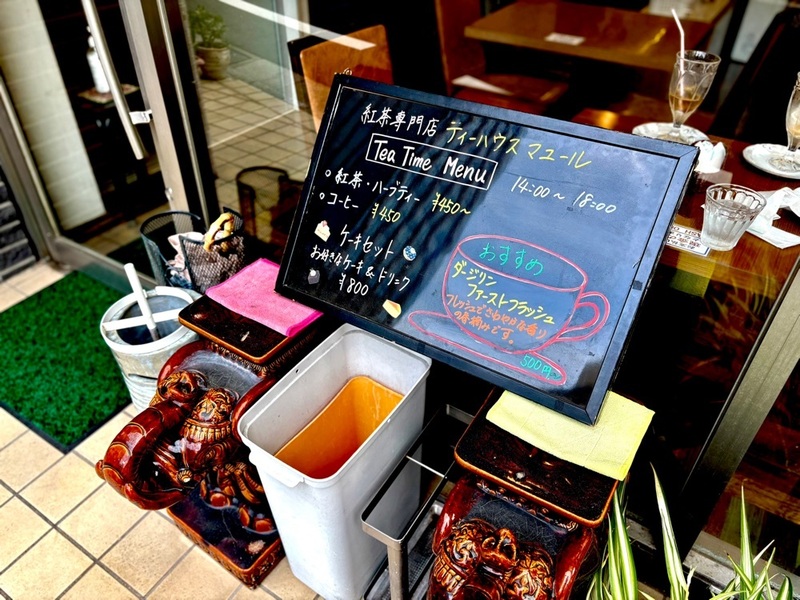 紅茶専門店 ティーハウス マユール
Tea Time Menu
14:00～18:00
○紅茶・ハーブティー ¥450～
○コーヒー ¥450
ケーキセット
お好きなケーキ&ドリンク
¥800
おすすめ
ダージリン
ファーストフラッシュ
フレッシュでさわやかな香り
の春摘みです。
500円